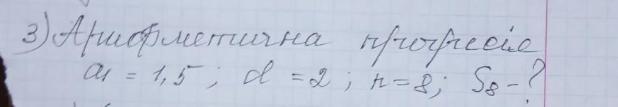 3) Арифметична прогресія
a₁ = 1,5 ; d = 2 ; n = 8; S₈ - ?